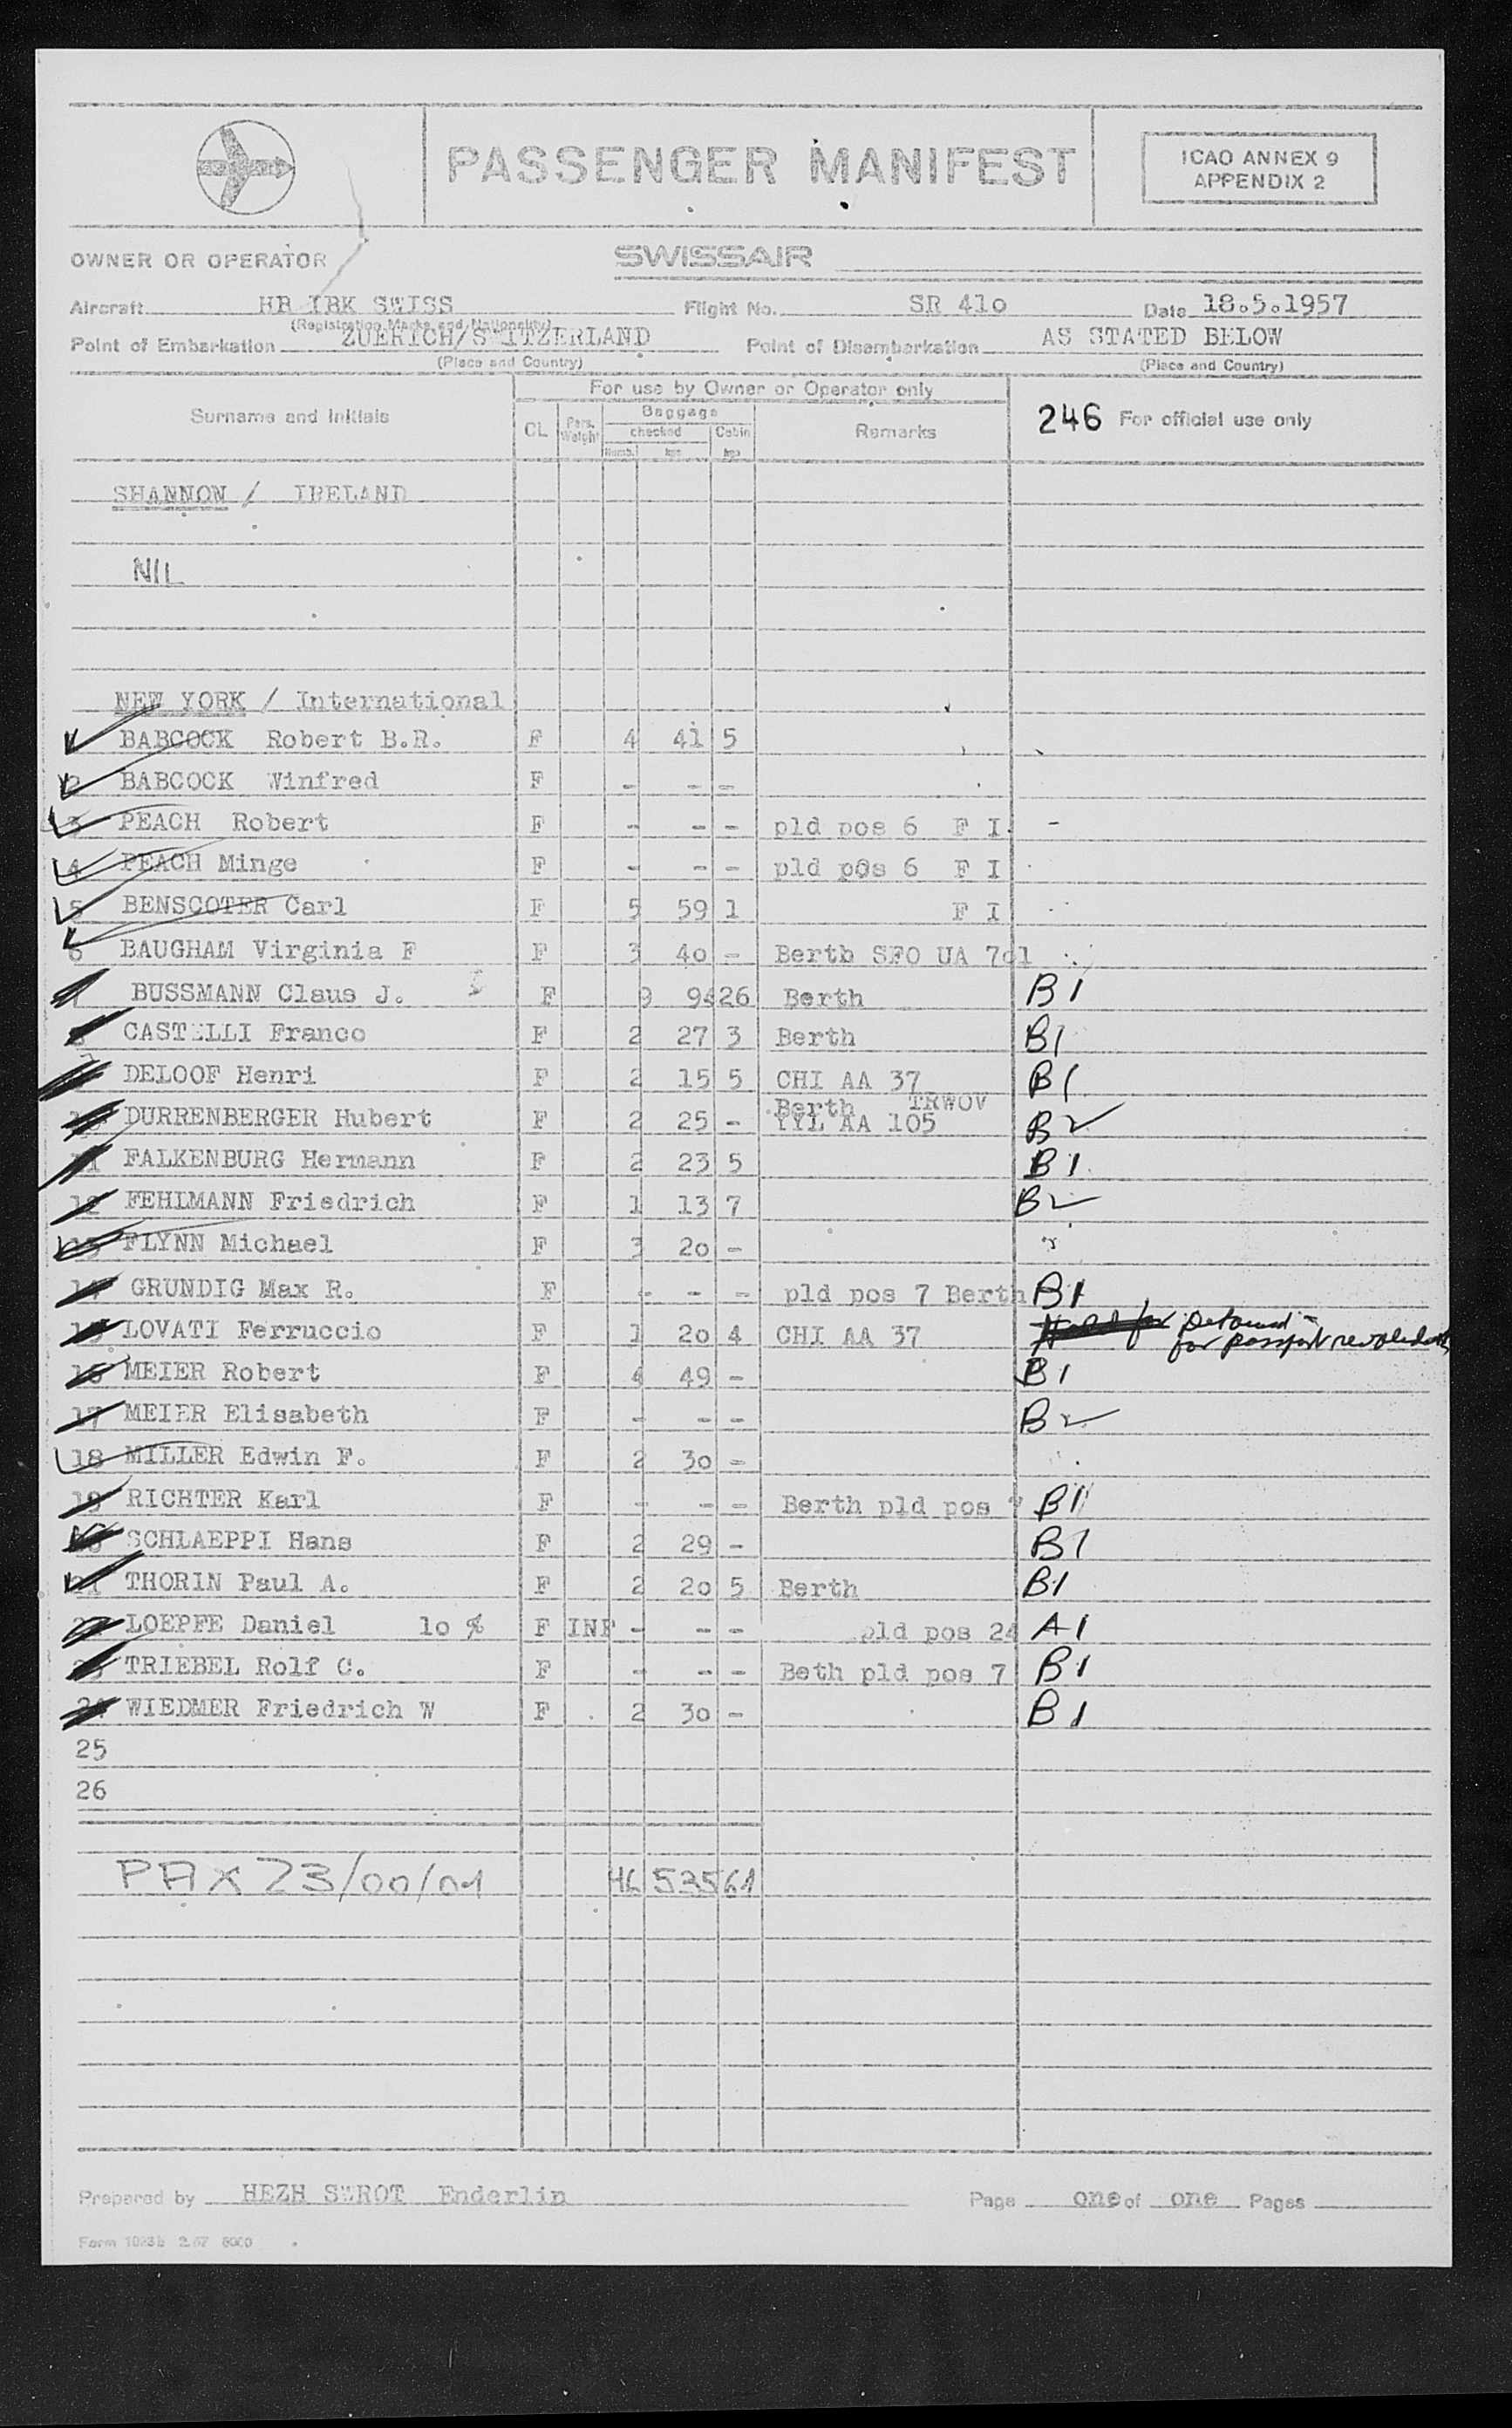 PASSENGER MANIFEST
ICAO ANNEX 9
APPENDIX 2
OWNER OR OPERATOR SWISSAIR
Aircraft HB IBK SWISS Flight No. SR 41o Date 18.5.1957
(Registration Marks and Nationality)
Point of Embarkation ZUERICH/S ITZERLAND Point of Disembarkation AS STATED BELOW
(Place and Country) (Place and Country)
For use by Owner or Operator only
Surname and Initials CL Pers. Weight Baggage checked Cabin Remarks 246 For official use only
Numb. kgs kgs
SHANNON / IRELAND
NIL
NEW YORK / International
BABCOCK Robert B.R. F 4 41 5
2 BABCOCK Winfred F - - -
3 PEACH Robert F - - - pld pos 6 F I. -
4 PEACH Minge F - - - pld pos 6 F I
5 BENSCOTER Carl F 5 59 1 F I
6 BAUGHAM Virginia F F 3 4o - Berth SFO UA 7o1
7 BUSSMANN Claus J. F 9 94 26 Berth B1
CASTELLI Franco F 2 27 3 Berth B1
DELOOF Henri F 2 15 5 CHI AA 37 B1
DURRENBERGER Hubert F 2 25 - Berth TRWOV B2
YYL AA 1o5
11 FALKENBURG Hermann F 2 23 5 B1
12 FEHLMANN Friedrich F 1 13 7 B2
13 FLYNN Michael F 3 2o -
14 GRUNDIG Max R. F - - - pld pos 7 Berth B1
15 LOVATI Ferruccio F 1 2o 4 CHI AA 37 Detained -
for passport
16 MEIER Robert F 4 49 - B1
17 MEIER Elisabeth F - - - B2
18 MILLER Edwin F. F 2 3o -
19 RICHTER Karl F - - - Berth pld pos 7 B1
SCHLAEPPI Hans F 2 29 - B1
21 THORIN Paul A. F 2 2o 5 Berth B1
22 LOEPFE Daniel 1o % F INF - - - pld pos 24 A1
23 TRIEBEL Rolf C. F - - - Beth pld pos 7 B1
24 WIEDMER Friedrich W F 2 3o - B1
25
26
PAX 23/00/01 46 535 61
Prepared by HEZH SWROT Enderlin Page one of one Pages
Form 1023b 2.57 6000